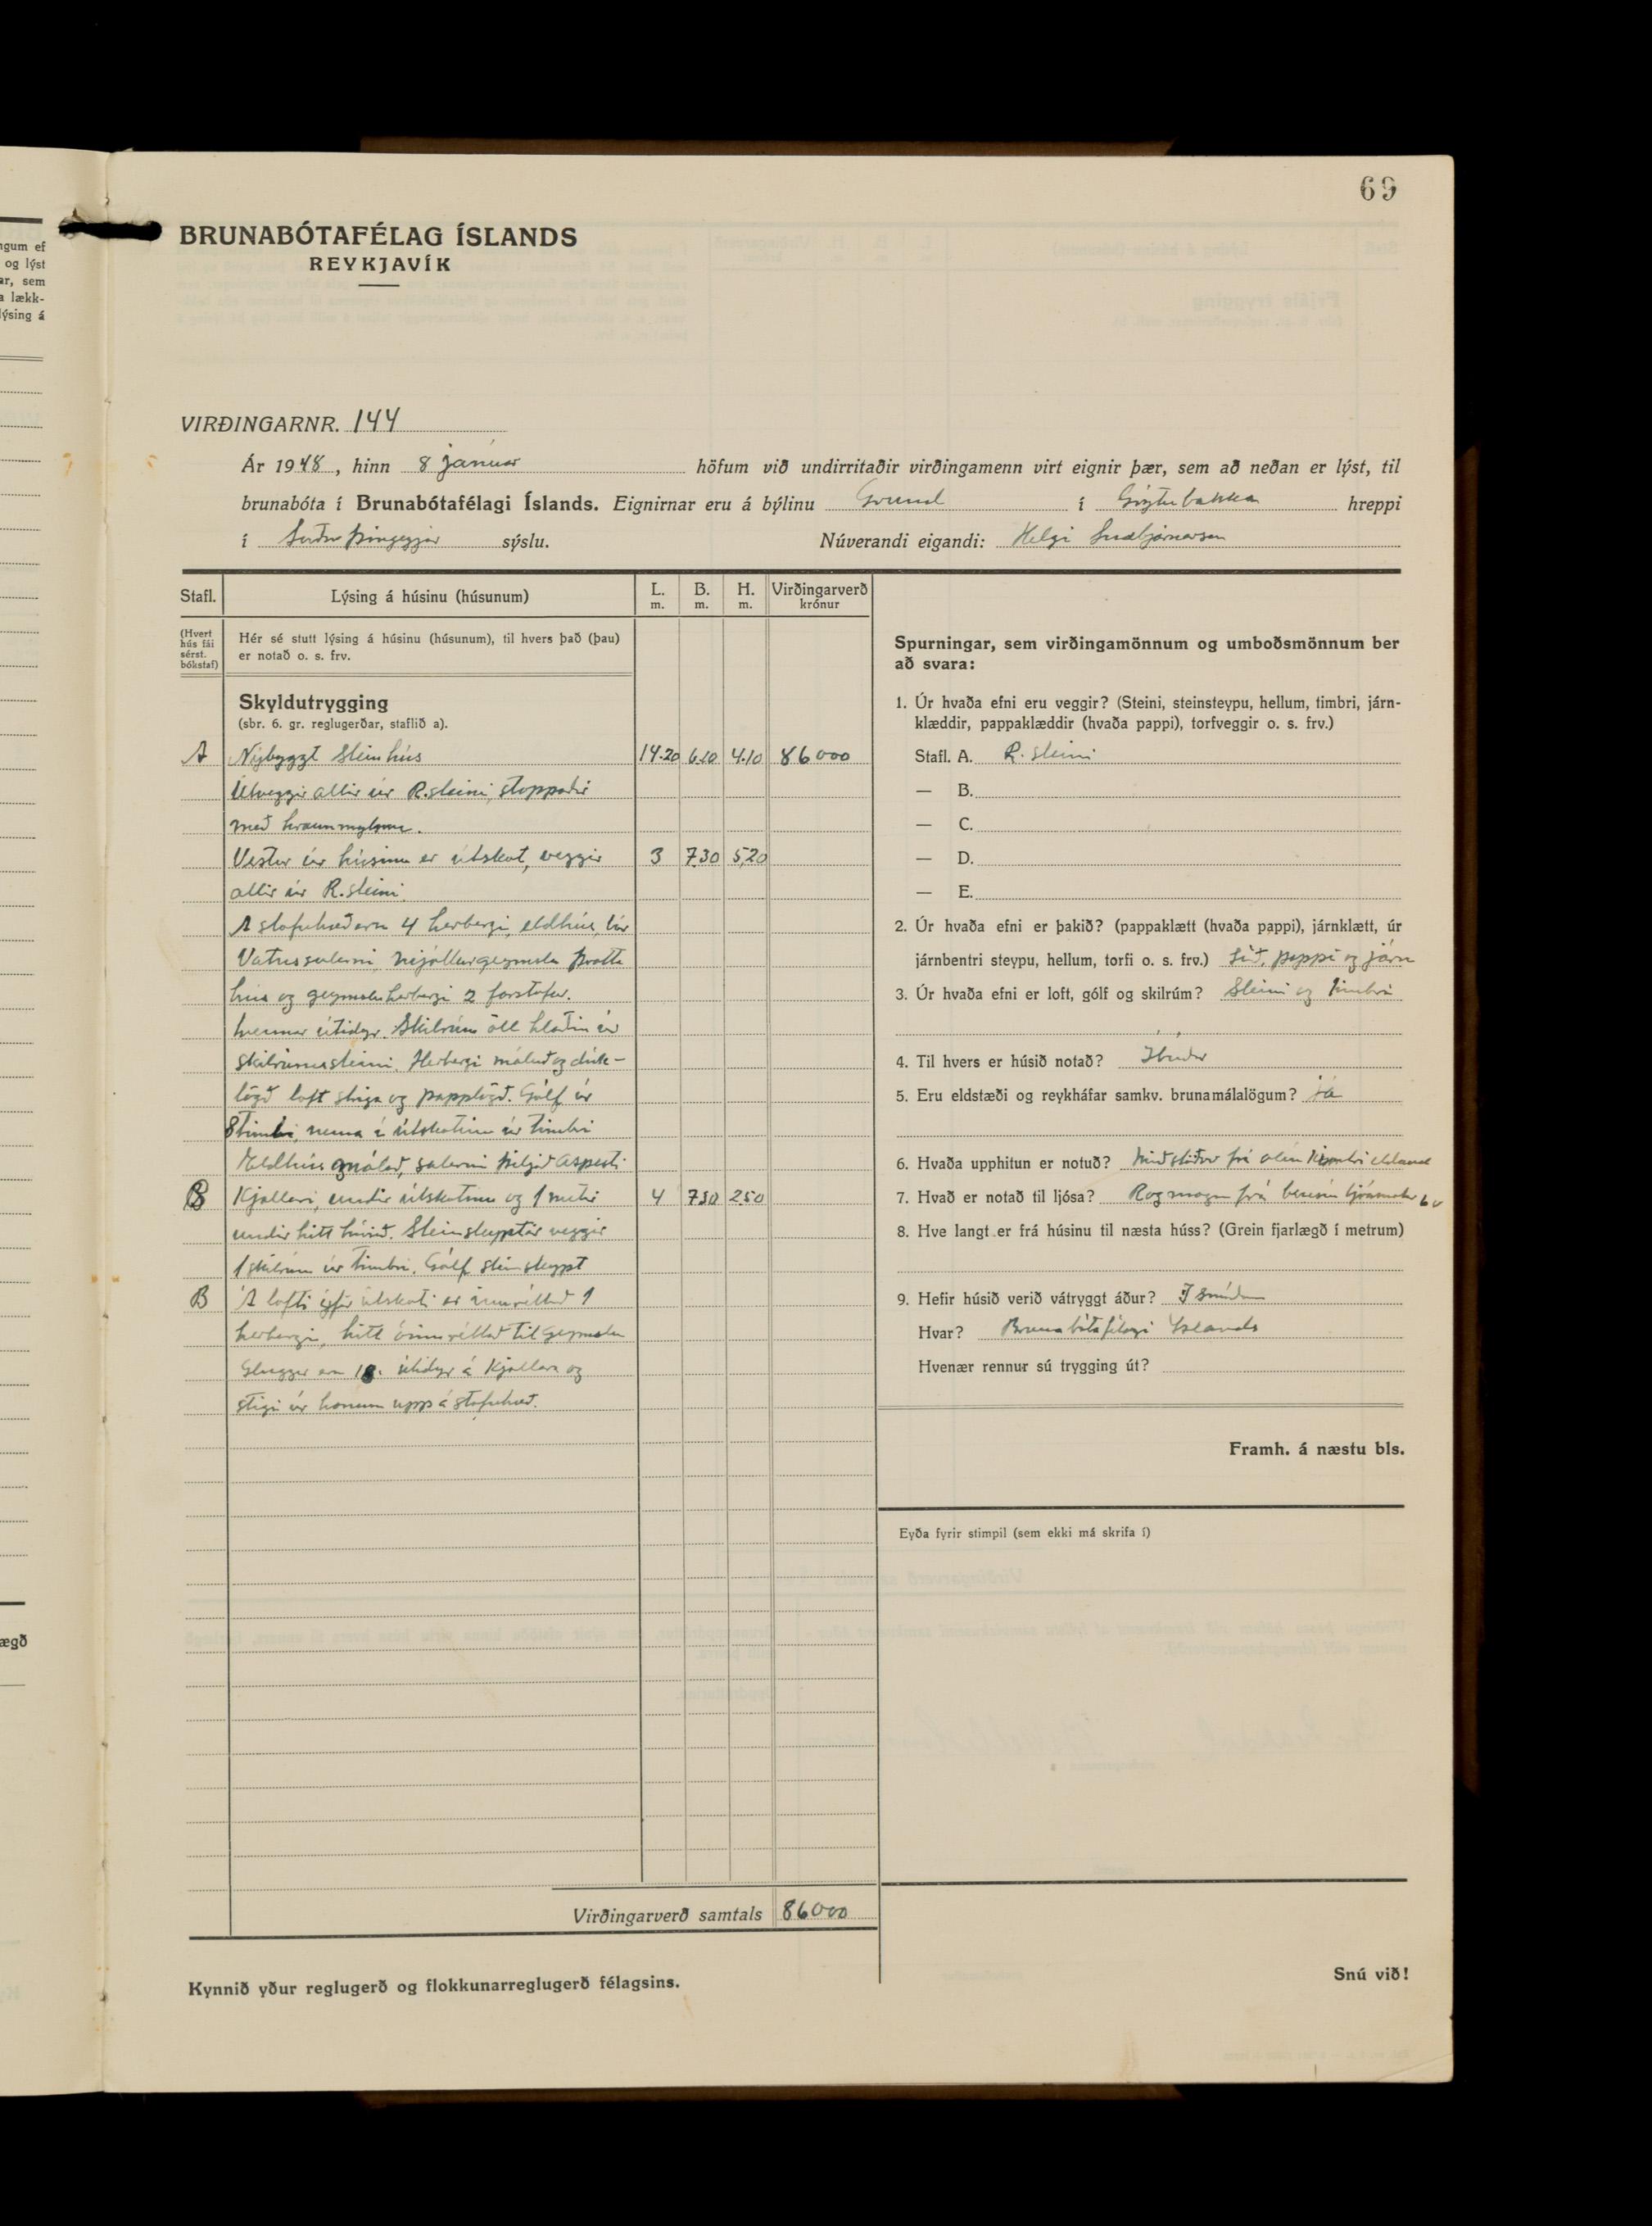 69
BRUNABÓTAFÉLAG ÍSLANDS
REYKJAVÍK
VIRÐINGARNR. 144
Ár 1948, hinn 8 janúar höfum við undirritaðir virðingamenn virt eignir þær, sem að neðan er lýst, til
brunabóta í Brunabótafélagi Íslands. Eignirnar eru á býlinu Grund í Grýtubakka hreppi
í Suður Þingeyjar sýslu. Núverandi eigandi: Helgi Snæbjarnarson
Stafl. Lýsing á húsinu (húsunum) L. m. B. m. H. m. Virðingarverð krónur
(Hvert hús fái sérst. bókstaf)
Hér sé stutt lýsing á húsinu (húsunum), til hvers það (þau)
er notað o. s. frv.
Skyldutrygging
(sbr. 6. gr. reglugerðar, staflið a).
A Nýbyggt Steinhús 14.20 6.10 4.10 86000
Útveggir allir úr R.steini, stoppaðir
með hraunmylsnu.
Vestur úr húsinu er útskot, veggir 3 7.30 5,20
allir úr R.steini.
Á stofuhæð eru 4 herbergi, eldhús, búr
Vatnssalerni, mjólkurgeymsla þvotta
hús og geymsluherbergi 2 forstofur.
tvennar útidyr. Skilrúm öll hlaðin úr
skilrúmssteini. Herbergi máluð og dúk-
lögð loft striga og papplögð. Gólf úr
Stimbri, nema í útskotinu úr timbri
Eldhús málað, salerni þiljað Aspesti
B Kjallari, undir útskotinu og 1 metri 4 7.30 2.50
undir hitt húsið. Steinsteyptir veggir
1 skilrúm úr timbri. Gólf steinsteypt
B Á lofti yfir útskoti er innréttað 1
herbergi, hitt óinnréttað til geymslu
Gluggar eru útidyr á Kjallara og
stigi úr honum upp á stofuhæð.
Virðingarverð samtals 86000
Kynnið yður reglugerð og flokkunarreglugerð félagsins.
Spurningar, sem virðingamönnum og umboðsmönnum ber
að svara:
1. Úr hvaða efni eru veggir? (Steini, steinsteypu, hellum, timbri, járn-
klæddir, pappaklæddir (hvaða pappi), torfveggir o. s. frv.)
Stafl. A. R. steini
— B.
— C.
— D.
— E.
2. Úr hvaða efni er þakið? (pappaklætt (hvaða pappi), járnklætt, úr
járnbentri steypu, hellum, torfi o. s. frv.) súð, pappi og járn
3. Úr hvaða efni er loft, gólf og skilrúm? Steini og timbri
4. Til hvers er húsið notað? Íbúðar
5. Eru eldstæði og reykháfar samkv. brunamálalögum? já
6. Hvaða upphitun er notuð? Miðstöðvar frá
7. Hvað er notað til ljósa? Rafmagn frá bensín ljósmótor
8. Hve langt er frá húsinu til næsta húss? (Grein fjarlægð í metrum)
9. Hefir húsið verið vátryggt áður? Í Smíðum
Hvar? Brunabótafélagi Íslands
Hvenær rennur sú trygging út?
Framh. á næstu bls.
Eyða fyrir stimpil (sem ekki má skrifa í)
Snú við!